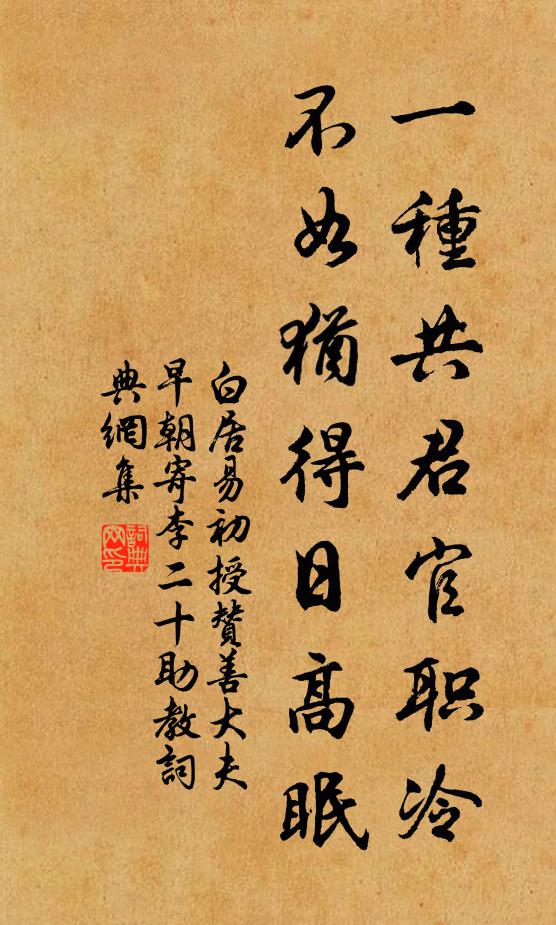 一種共君官职冷
不如猶得日高眠
白居易初授贊善大夫
早朝寄李二十助教詞
典網集
詞典网印